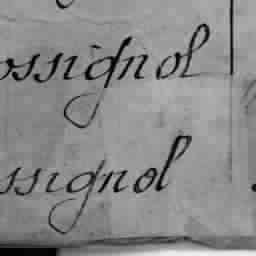 ossignol
ssignol